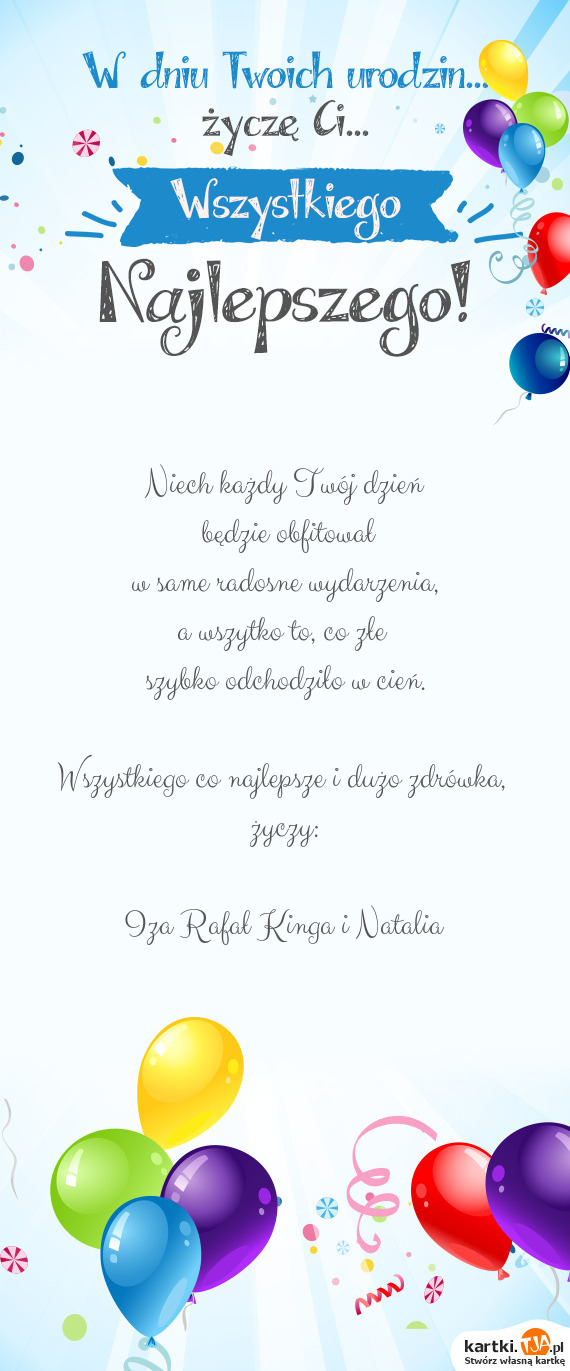 W dniu Twoich urodzin...
życzę Ci...
Wszystkiego
Najlepszego!
Niech każdy Twój dzień
będzie obfitował
w same radosne wydarzenia,
a wszytko to, co złe
szybko odchodziło w cień.
Wszystkiego co najlepsze i dużo zdrówka,
życzy:
Iza Rafał Kinga i Natalia
kartki.TJA.pl
Stwórz własną kartkę